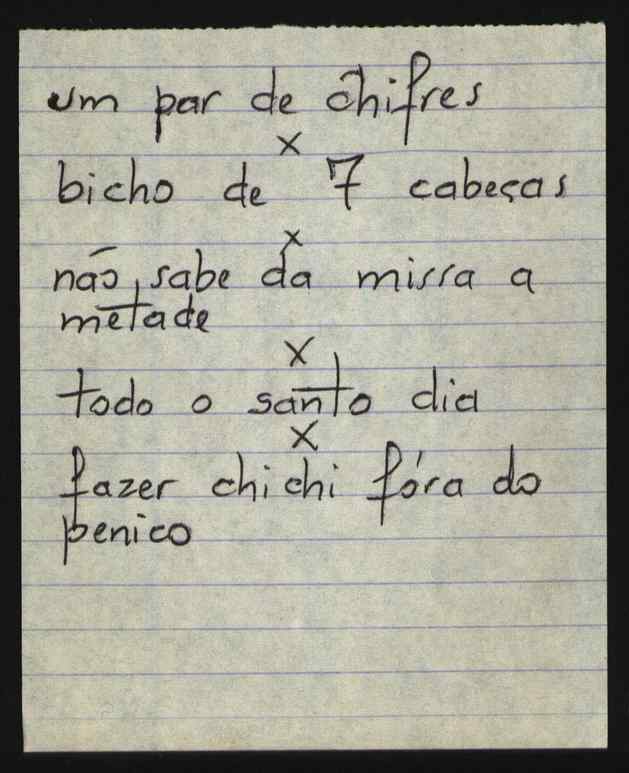 um par de chifres
x
bicho de 7 cabeças
x
não sabe da missa a
metade
x
todo o santo dia
x
fazer chichi fóra do
penico